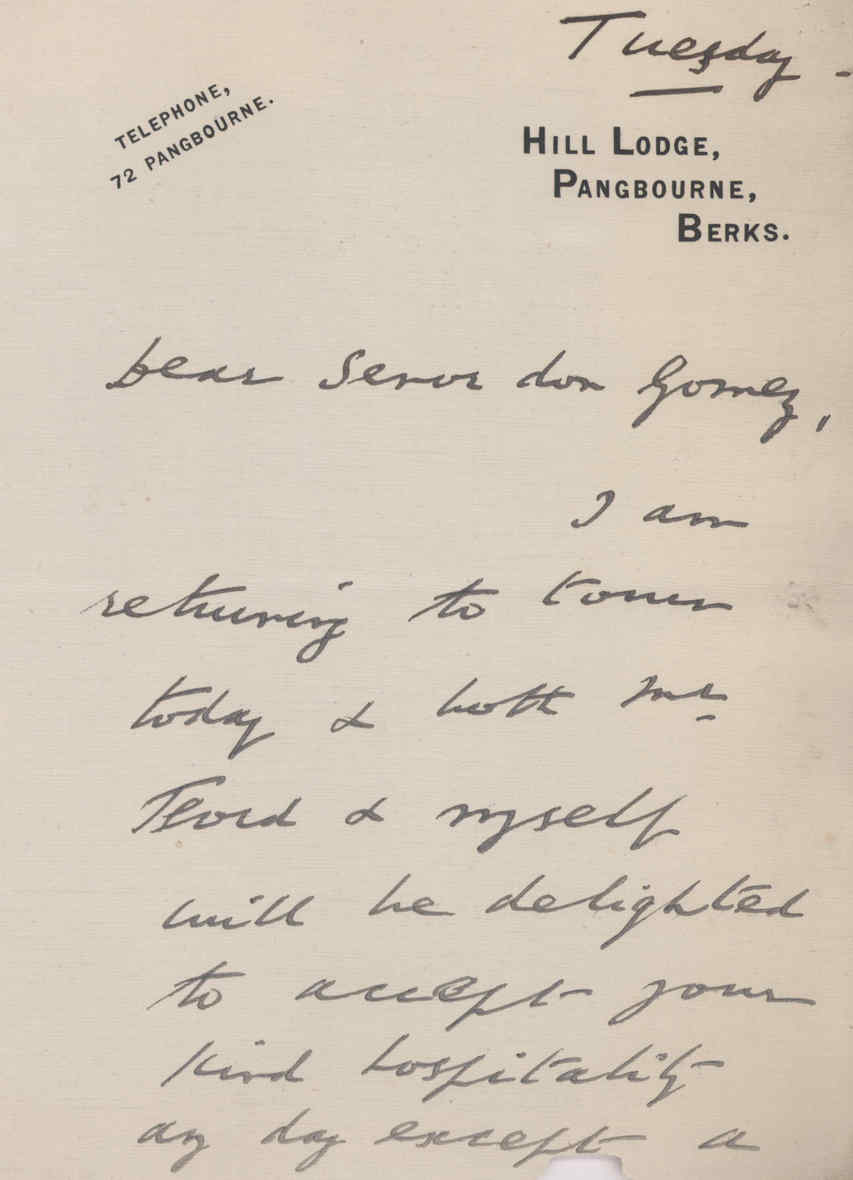 Tuesday -
TELEPHONE,
72 PANGBOURNE.
HILL LODGE,
PANGBOURNE,
BERKS.
Dear Senor don Gomez,
I am
returning to town
today & both Mr
& myself
will be delighted
to accept your
kind hospitality
any day except a